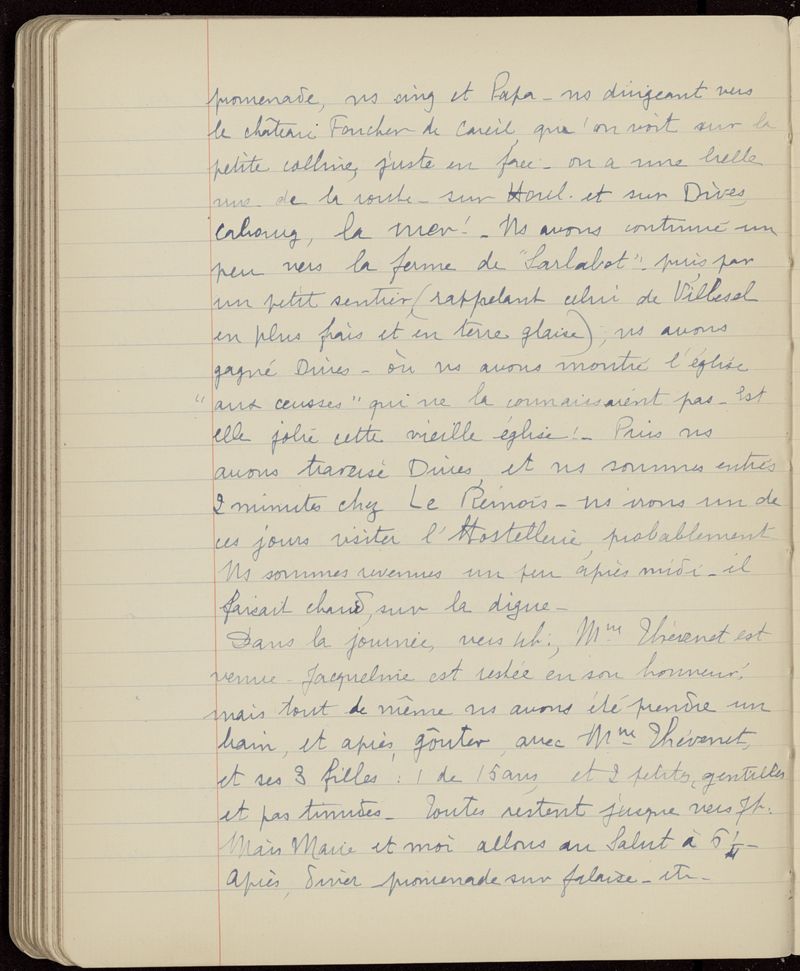 promenade, ns cinq et Papa - ns dirigeant vers
le château Foucher de Careil, que l'on voit sur la
petite colline, juste en face - on a une belle
vue - de la route - sur Houl. et sur Dives,
Cabourg, la mer! - Ns avons continué un
peu vers la ferme de "Sarlabot" - puis par
un petit sentier (rappelant celui de
en plus frais et en terre glaise), ns avons
gagné Dives - où ns avons montré l'église
"aux ceusses" qui ne la connaissaient pas - Est
elle jolie cette vieille église! - Puis ns
avons traversé Dives, et ns sommes entrés
2 minutes chez Le Rémois - ns irons un de
ces jours visiter l'Hostellerie, probablement
Ns sommes revenues un peu après midi - il
faisait chaud, sur la digue -
Dans la journée, vers 4h:, Mme Thévenet est
venue - Jacqueline est restée en son honneur!
mais tout de même ns avons été prendre un
bain, et après, goûter, avec Mme Thévenet,
et ses 3 filles : 1 de 15 ans, et 2 petites, gentilles
et pas timides - Toutes restent jusque vers 7h.
Mais Marie et moi allons au Salut à 5
Après, dîner - promenade sur falaise - etc -